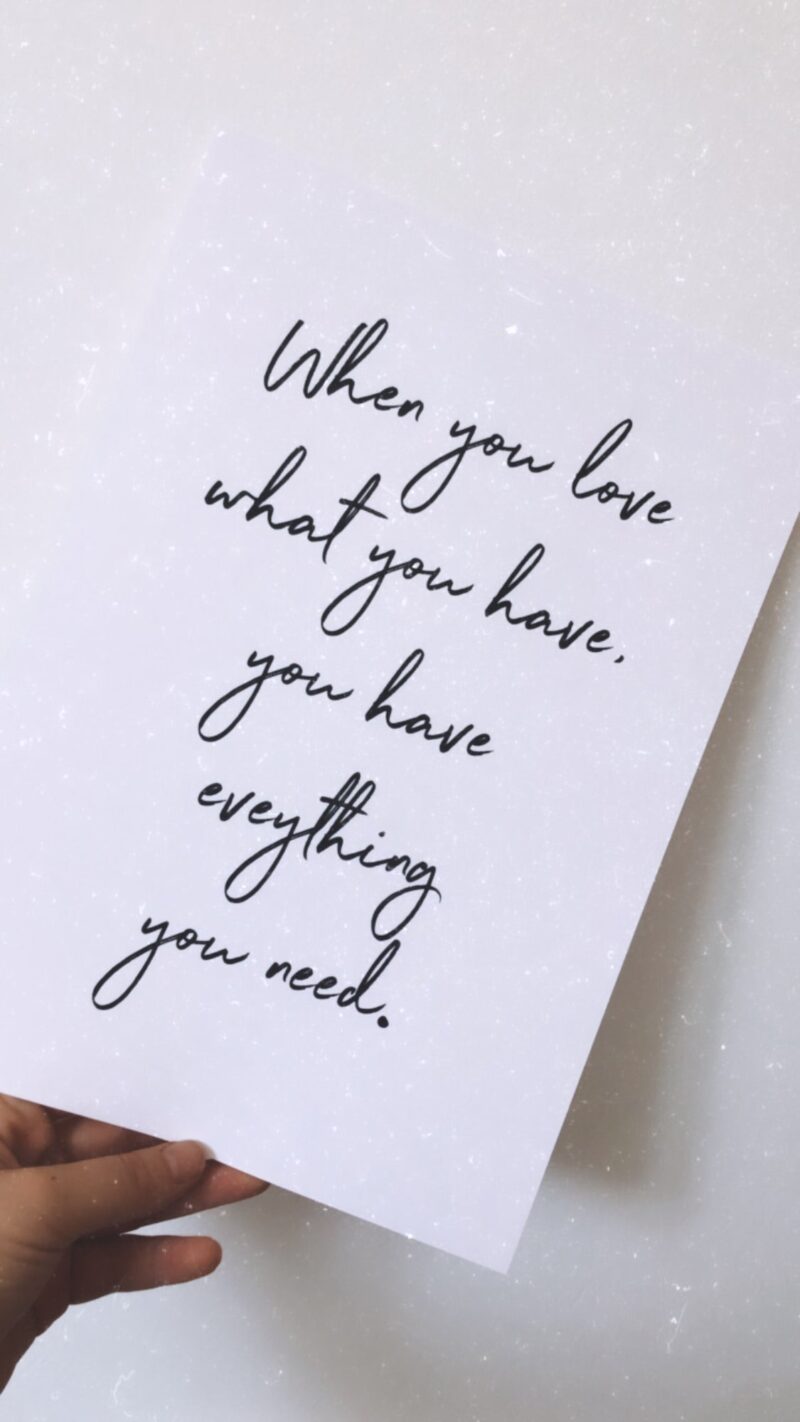 When you love
what you have,
you have
eveything
you need.